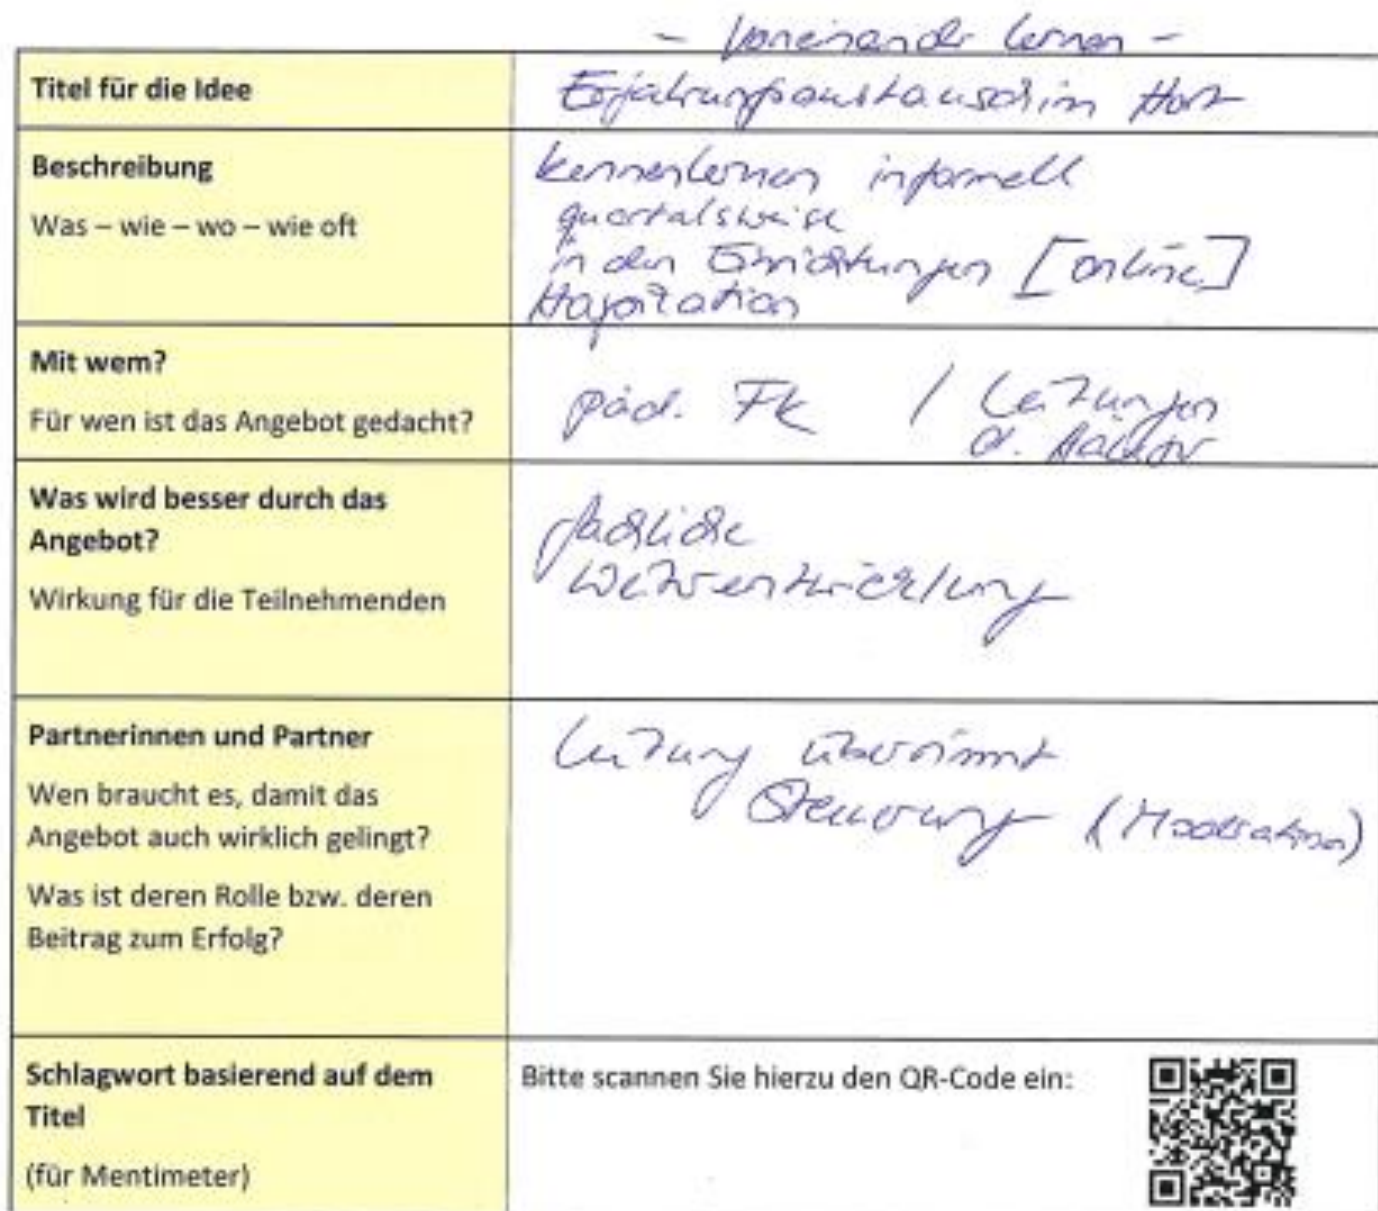 - Voneinander lernen -
Titel für die Idee
Erfahrungsaustausch im Hort
Beschreibung
Was – wie – wo – wie oft
kennenlernen informell
quartalsweise
in den Einrichtungen [online]
Hospitation
Mit wem?
Für wen ist das Angebot gedacht?
päd. Fk / Leitungen
d.
Was wird besser durch das
Angebot?
Wirkung für die Teilnehmenden
fachliche
Weiterentwicklung
Partnerinnen und Partner
Wen braucht es, damit das
Angebot auch wirklich gelingt?
Was ist deren Rolle bzw. deren
Beitrag zum Erfolg?
Leitung übernimmt
Steuerung (Moderation)
Schlagwort basierend auf dem
Titel
(für Mentimeter)
Bitte scannen Sie hierzu den QR-Code ein: